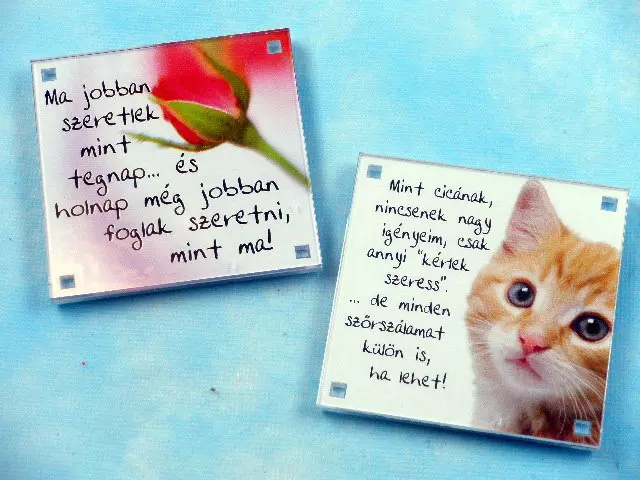 Ma jobban
szeretlek
mint
tegnap... és
holnap még jobban
foglak szeretni,
mint ma!
Mint cicának,
nincsenek nagy
igényeim, csak
annyi "kértek
szeress".
... de minden
szőrszálamat
külön is,
ha lehet!